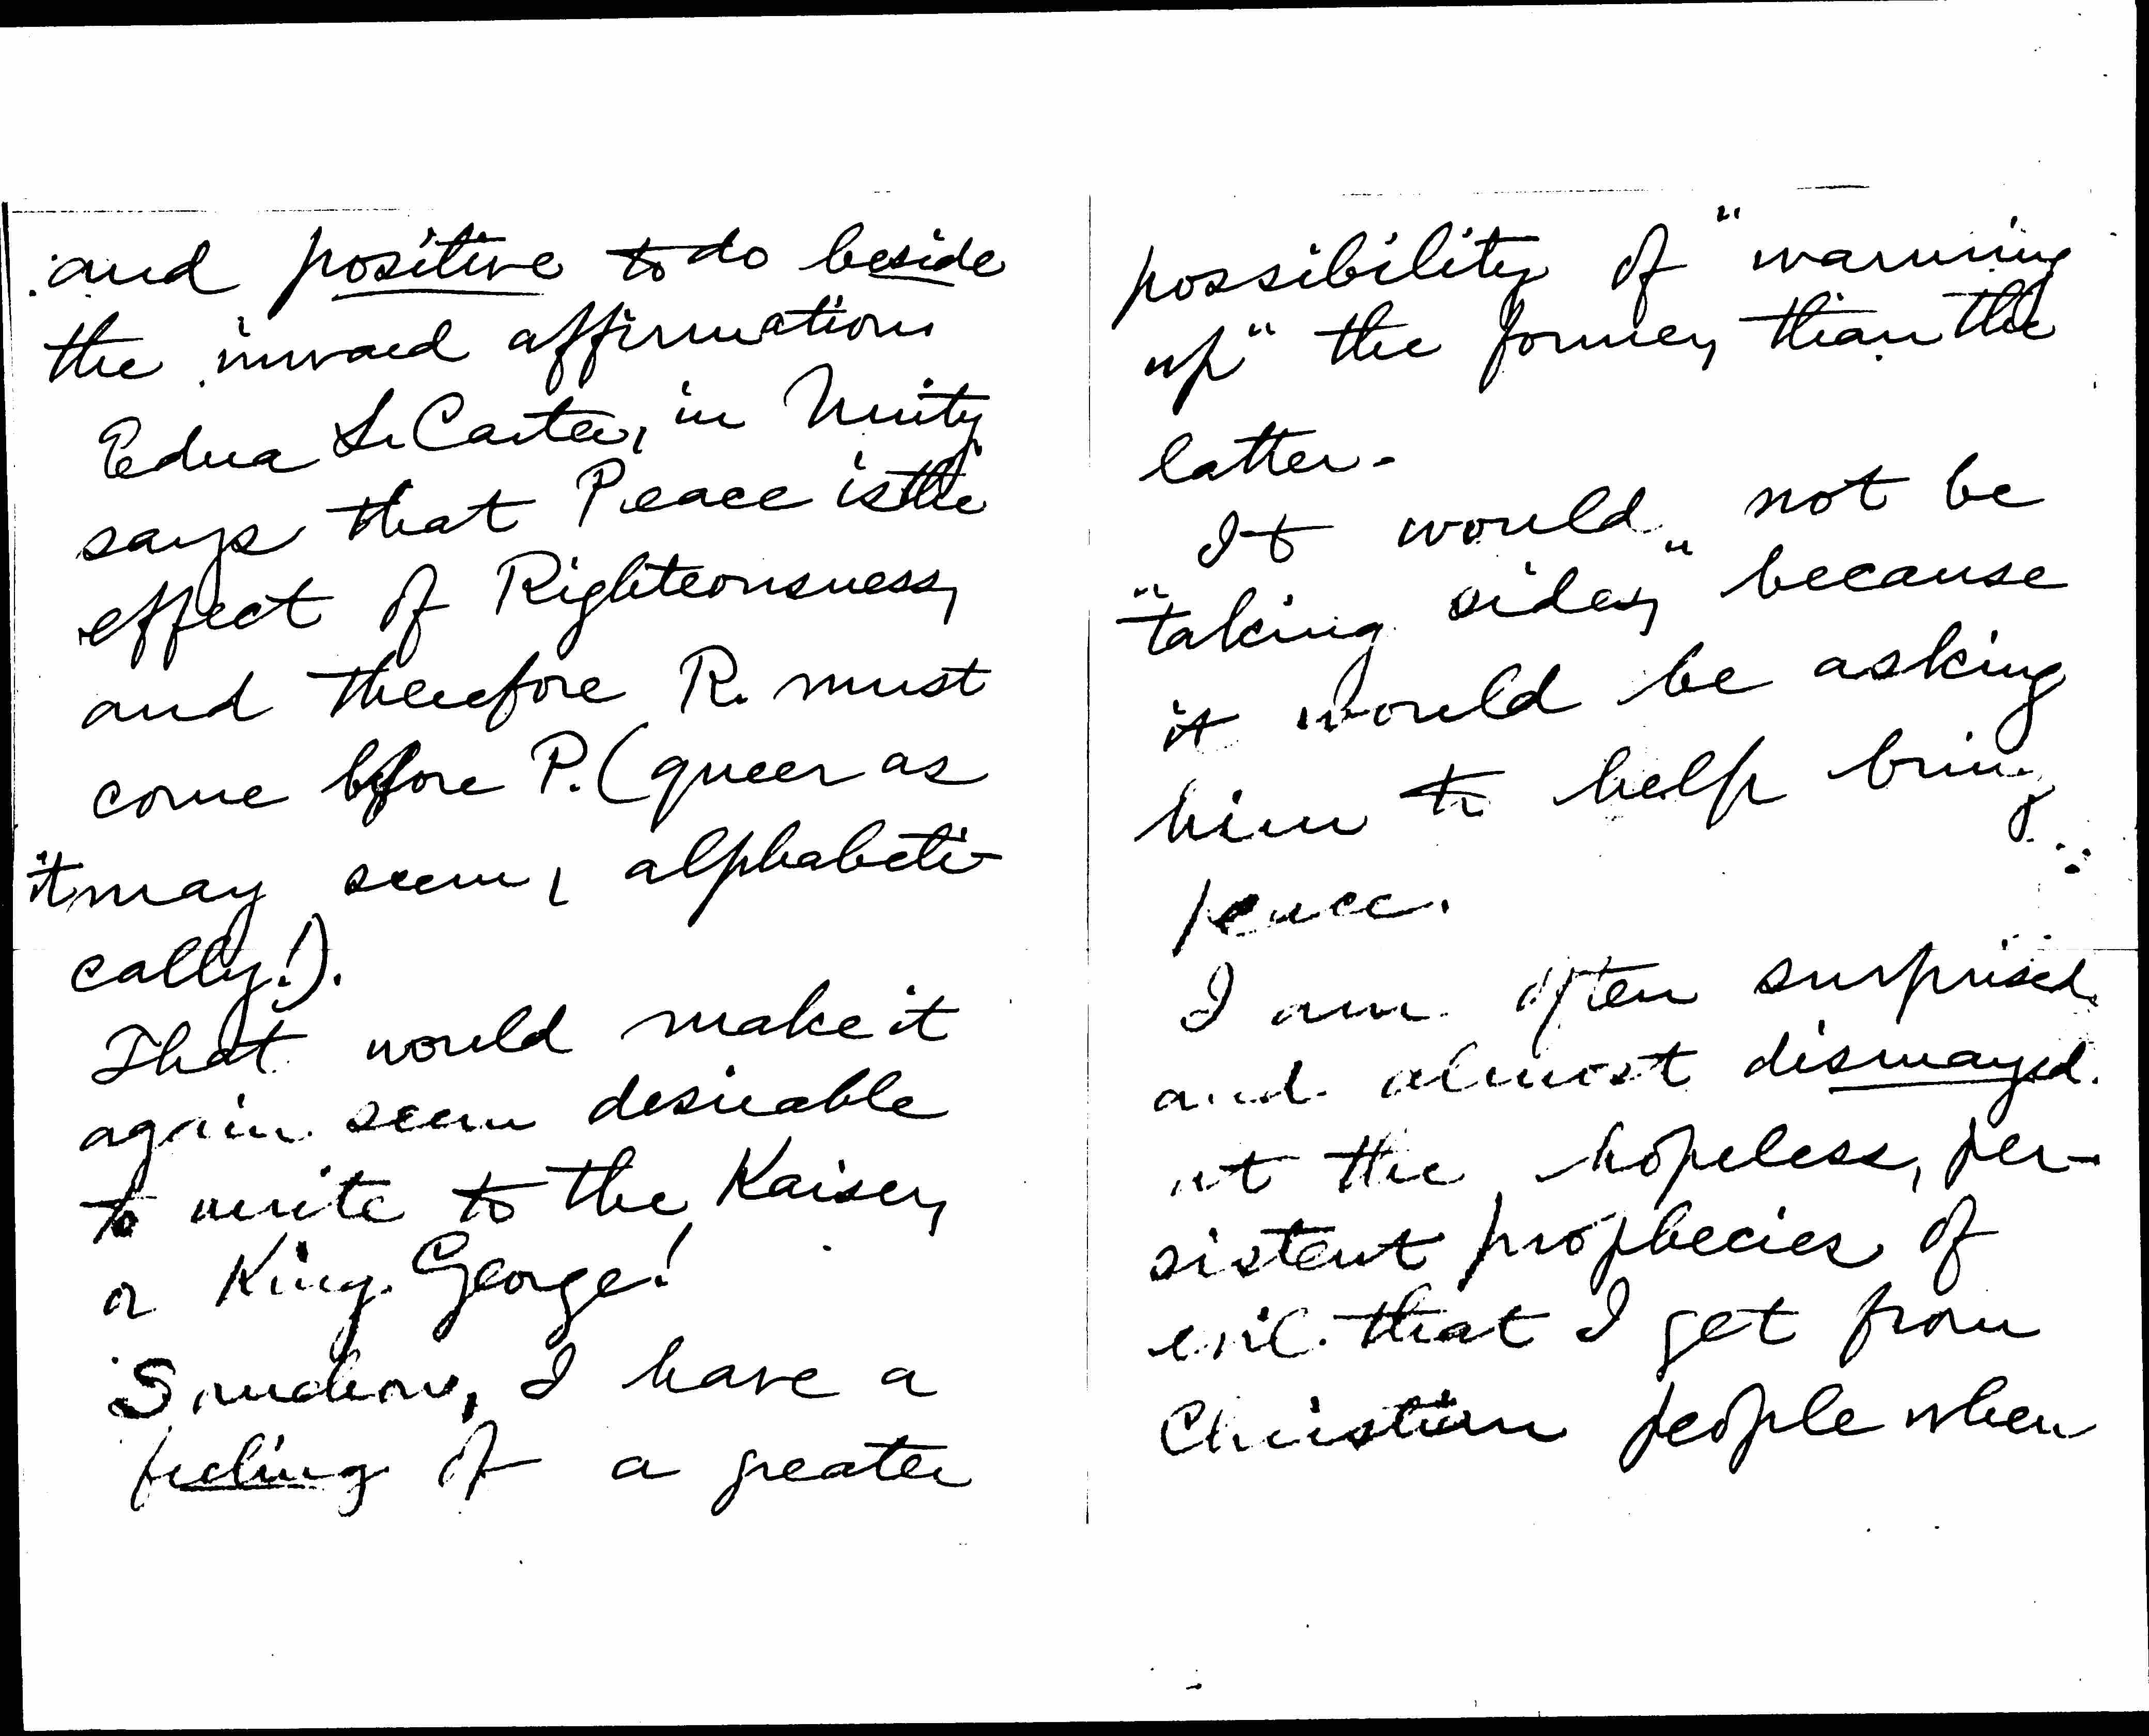 and positive to do beside
the inward affirmations
Edna L. Carter, in Unity
says that Peace is the
effect of Righteousness,
and therefore R. must
come before P. (queer as
it may seem, alphabeti-
cally!).
That would make it
again seem desirable
to write to the Kaiser,
or King George!
Somehow, I have a
feeling of a greater
possibility of "warming
up" the former, than the
latter.
It would not be
"taking sides," because
it would be asking
him to help bring
peace.
I am often surprised
and almost dismayed
at the hopeless, per-
sistent prophecies of
evil that I get from
Christian people when